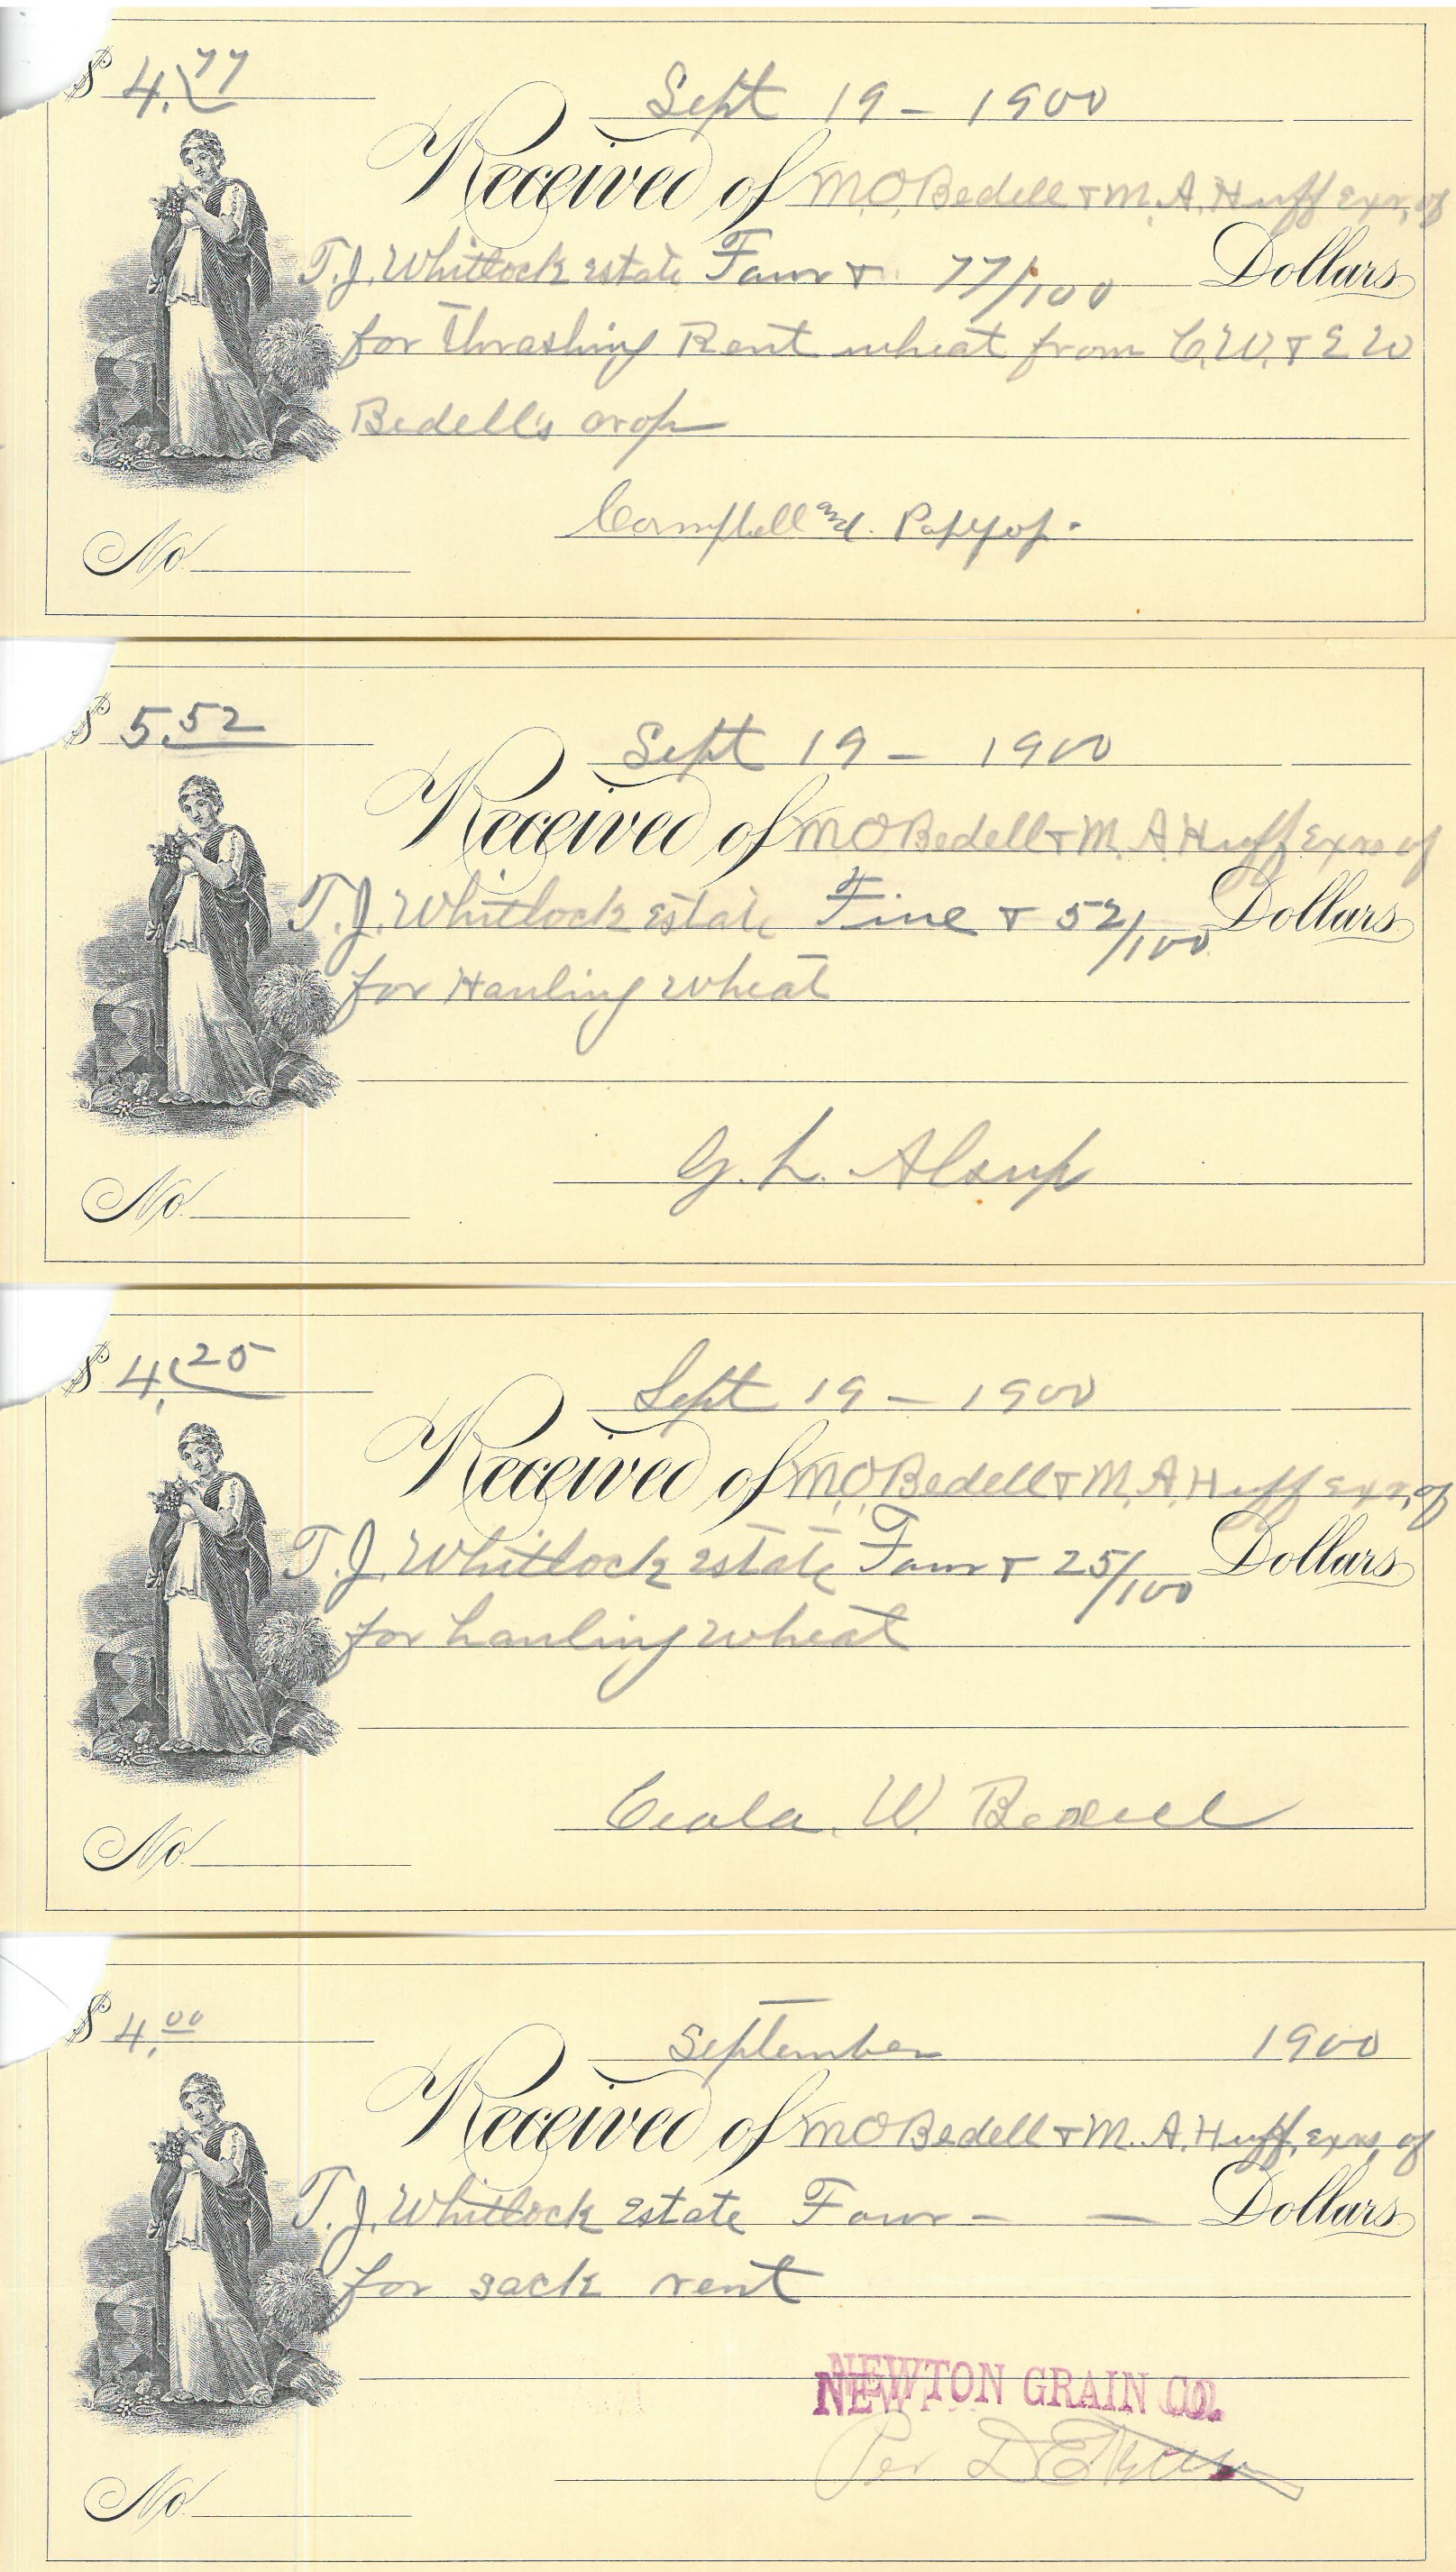 $ 4.77
Sept 19 - 1900
Received of M.O. Bedell & M.A. Huff Exrs, of
T.J. Whitlock Estate Four & 77/100 Dollars
for Thrashing Rent wheat from C.W. & E W
Bedell's crop
Campbell and
No.
$ 5.52
Sept 19 - 1900
Received of M O Bedell & M. A. Huff Exrs of
T.J. Whitlock Estate Five & 52/100 Dollars
for Hauling wheat
G. L. Alsup
No.
$ 4.25
Sept 19 - 1900
Received of M.O. Bedell & M.A. Huff Exrs, of
T.J. Whitlock Estate Four & 25/100 Dollars
for hauling wheat
W. Bedell
No.
$ 4.00
September 1900
Received of M O Bedell & M. A. Huff, Exrs, of
T.J. Whitlock Estate Four - - Dollars
for sack rent
NEWTON GRAIN CO.
Per
No.